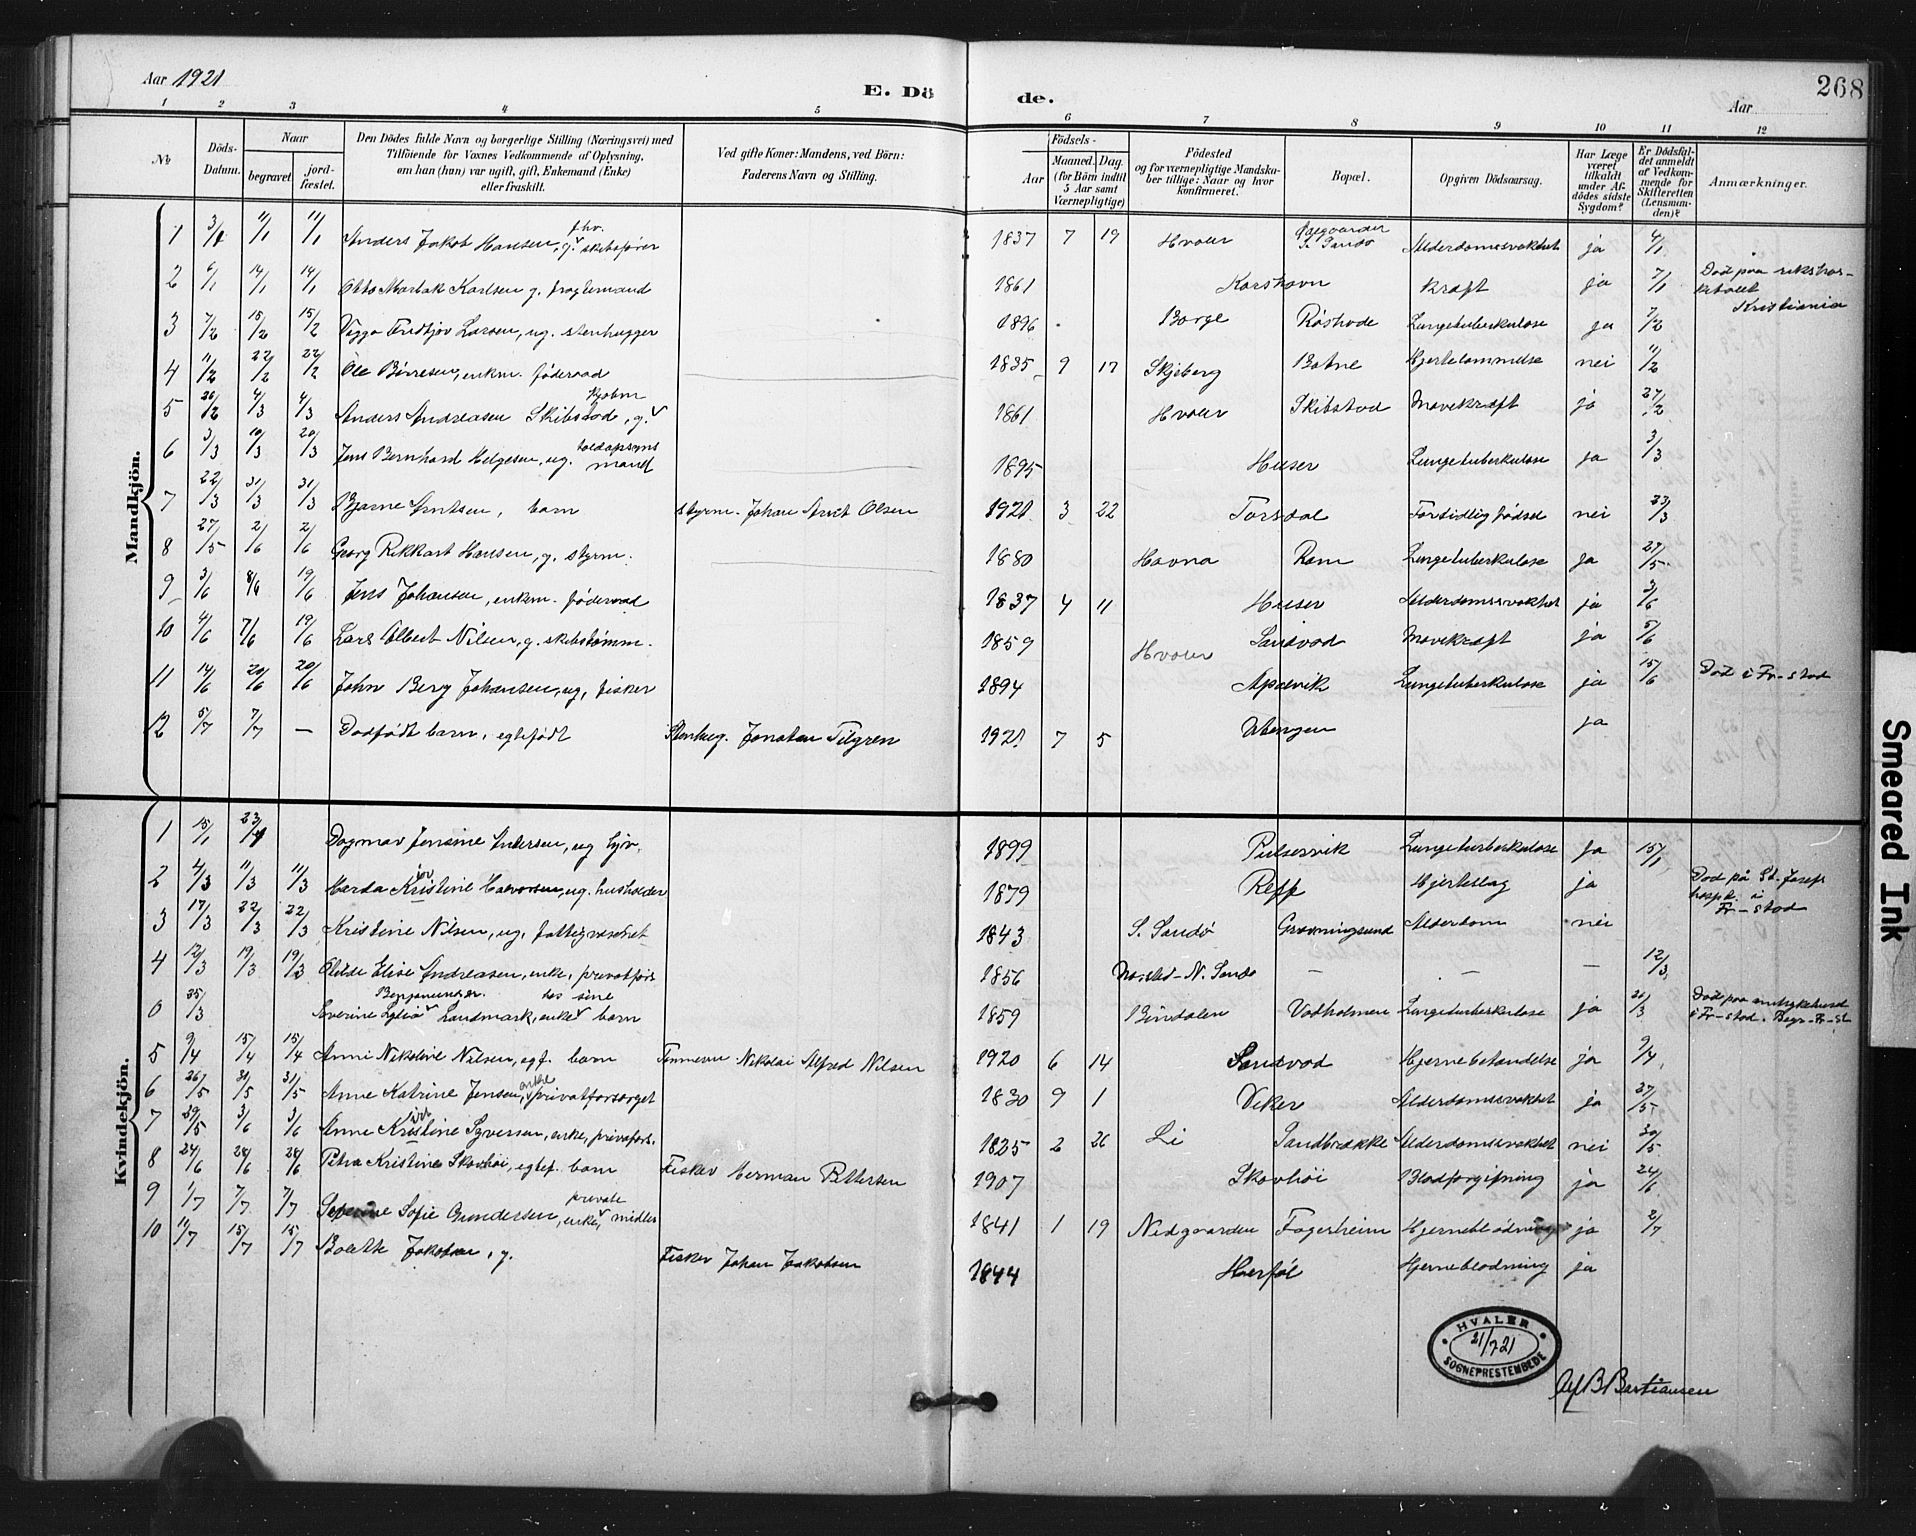 Aar 1921
E. Dö
de.
Aar
268
1 2 3 4 5 6 7 8 9 10 11 12
№
Döds-
Datum.
Naar
begravet
jord-
fæstet.
Den Dödes fulde Navn og borgerlige Stilling (Næringsvei) med
Tilföiende for Voxnes Vedkommende af Oplysning,
om han (hun) var ugift, gift, Enkemand (Enke)
eller fraskilt.
Ved gifte Koner: Mandens, ved Børn:
Faderens Navn og Stilling.
Födsels-
Aar
Maaned. Dag.
(for Börn indtil
5 Aar samt
Værnepligtige)
Födested
og for værnepligtige Mandska-
ber tillige: Naar og hvor
konfirmeret.
Bopæl.
Opgiven Dödsaarsag.
Har Læge
været
tilkaldt
under Af-
dödes sidste
Sygdom?
Er Dödsfal-
det anmeldt
af Vedkom-
mende for
Skifteretten
(Lensman-
den)?
Anmærkninger.
Mandkjön.
1 3/1 11/1 11/1 Anders Jakob Hansen, g. fhv. skibsfører 1837 7 19 Hvaler S. Sandø Alderdomssvakhet ja 4/1
2 6/1 14/1 14/1 Otto Karlsen g. fragtemand 1861 Korshavn kræft ja 7/1 Død paa rikshos-
pitalet
Kristiania
3 7/2 15/2 15/2 Viggo Fridtjov Larsen, ug. stenhugger 1896 Borge Røshode Lungetuberkulose ja 7/2
4 11/2 22/2 22/2 Ole Børresen, enkm. føderaad 1835 9 17 Skjeberg Botne Hjertelammelse nei 11/2
5 26/2 4/3 4/3 Anders Andreasen Skibstad, g. kjøbm 1861 Hvaler Skibstad Mavekræft ja 27/2
6 3/3 10/3 20/3 Jens Bernhard Helgesen, ug. toldopsyns
mand 1895 Huser Lungetuberkulose ja 3/3
7 22/3 31/3 31/3 Bjarne Arntsen, barn styrm. Johan Arnt Olsen 1921 3 22 Torsdal Fortidlig fødsel nei 23/3
8 27/5 2/6 2/6 Georg Rikkart Hansen, g. styrm. 1880 Havna Rom Lungetuberkulose ja 27/5
9 3/6 8/6 19/6 Jens Johansen, enkem. føderaad 1837 4 11 Huser Alderdomssvakhet ja 3/6
10 4/6 7/6 19/6 Lars Albert Nilsen, g. skibstømm. 1859 Hvaler Sandvad Mavekræft ja 5/6
11 14/6 20/6 20/6 John Berg Johansen, ug, fisker 1894 Apalvik Lungetuberkulose ja 15/6 Død i Fr-stad
12 5/7 7/7 — Dødfødt barn, egtefødt Stenhug. Jonatan Tilgren 1921 7 5 Utengen ja
Kvindekjön.
1 15/1 23/1 Dagmar Jensine Andersen, ug 1899 Pulservik Lungetuberkulose ja 15/1
2 4/3 11/3 11/3 Marda Kristine Halvorsen, ug. husholder 1879 Reff Hjerteslag ja Død på St. Josep
hospit. i
Fr-stad
3 17/3 22/3 22/3 Kristine Nilsen, ug, fattigvæsenet 1843 S. Sandø Gravningsund Alderdom nei
4 12/3 19/3 19/3 Olilde Elise Andreasen, enke, privatfors 1856 N. Sandø — — — 12/3
0 25/3 Severine Landmark, enke hos sine barn 1859 Bindalen Vadholmen Lungetuberkulose ja 26/3 Død paa amtsykehuset
i Fr-stad. Begr. Fr-st
5 9/4 15/4 15/4 Anni Nikoline Nilsen, egf. barn Tømmerm Nikolai Alfred Nilsen 1920 6 14 Sandvad Hjernebetændelse ja 9/4
6 26/5 31/5 31/5 Anne Katrine Jensen, enke privatforsørget 1830 9 1 Viker Alderdomssvakhet ja 27/5
7 29/5 3/6 3/6 Anne Kristine Syversen, enke, privafors. 1825 2 26 Li Sandbrække Alderdomssvakhet nei 30/5
8 24/6 28/6 28/6 Petra Kristine Skovhøi, egtef. barn Fisker Herman Pettersen 1907 Skovhøi Blodforgiftning ja 24/6
9 1/7 7/7 7/7 Severine Sofie Gundersen, enke, private midler 1841 1 19 Nedgaarden Fagerheim Hjerneblødning ja 2/7
10 11/7 15/7 15/7 Bolette Jakobsen, g. Fisker Johan Jakobsen 1844 Herføl Hjerneblødning ja
HVALER
21/7 21
SOGNEPRESTEMBEDE
Alf B Bastiansen
Smeared Ink